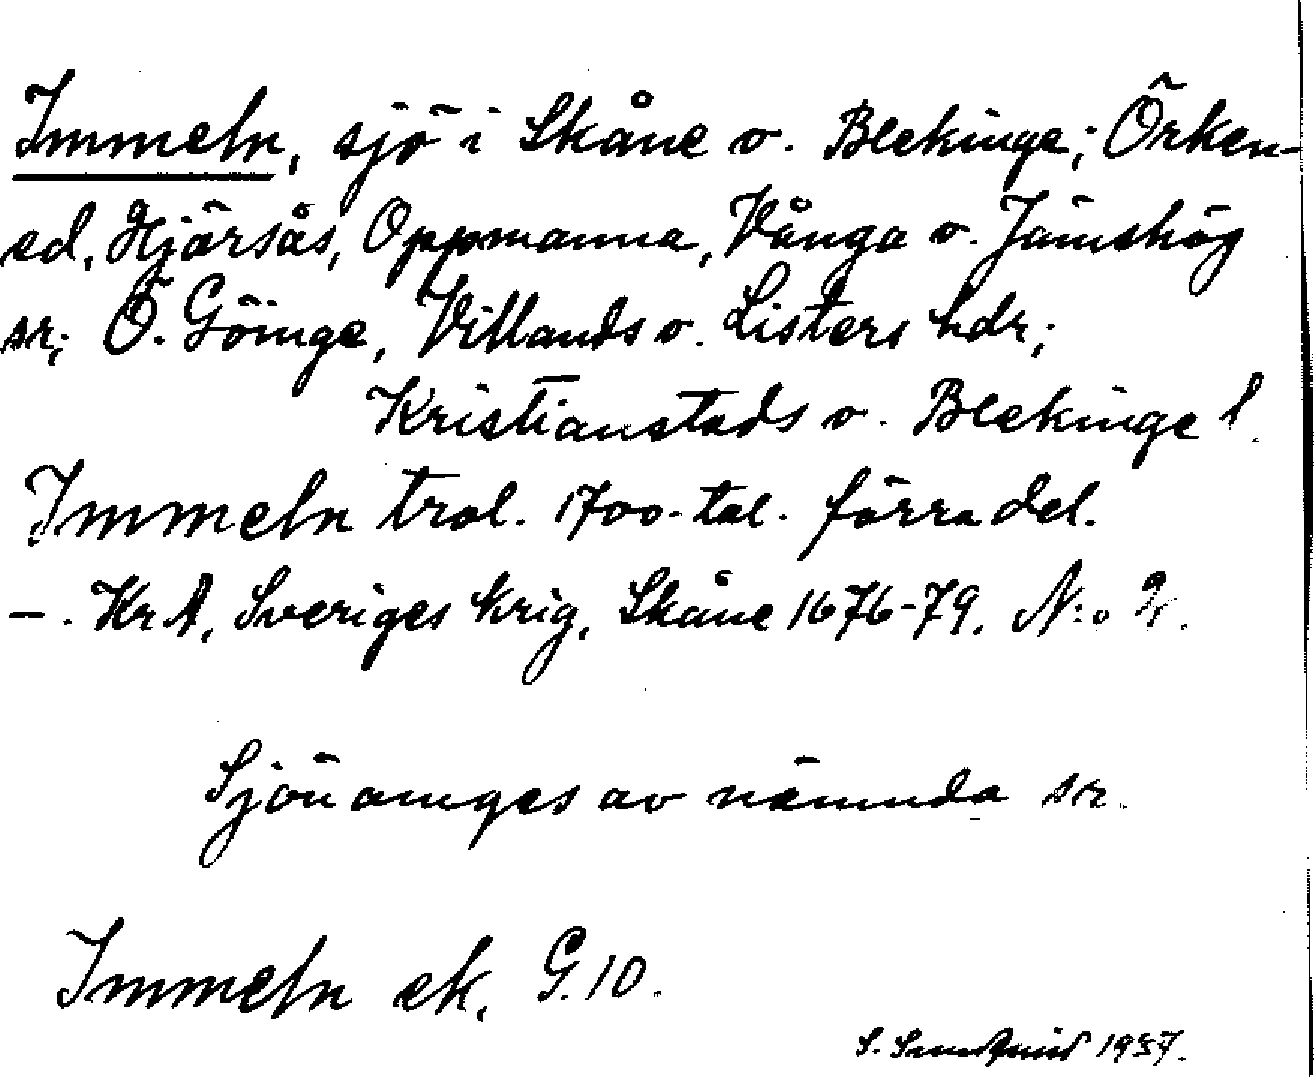 Immeln, sjö i Skåne o. Blekinge; Örken-
ed, Hjärsås, Oppmanna, Vånga o. Jämshög
sr; Ö. Göinge, Villands o. Listers hdr;
Kristianstads o. Blekinge l.
Immeln trol. 1700-tal. förra del.
–. KrA, Sveriges krig, Skåne 1676-79. N:o 2.
Sjön omges av nämnda sr.
Immeln ek. G.10.
S. Sundquist 1937.